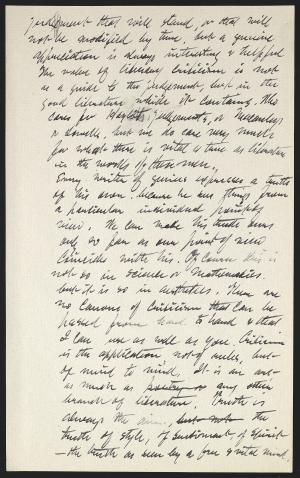 judgement that will stand, or that will
not be modified by time, but a genuine
appreciation is always interesting & helpful
The value of literary criticism is not
as a guide to the judgement, but in the
good literature which it contains. Who
cares for judgements, or Macaulay's
& Lowell's. but we do care very much
for what there is vital & true as literature
in the works of these men.
Every writer of genius expresses a truth
of his own, because he sees things from
a particular individual point of
view. He can make his truth ours
only so far as our point of view
coincides with his. Of course this is
not so in science or mathematics.
but it is so in aesthetics. There are
no canons of criticism that can be
passed from hand to hand & that
I can use as well as you. Criticism
is the application, not of rules, but
of mind to mind. It is an art
as much as poetry or any other
branch of literature. Truth is
always the aim, but not the
truth of style, of sentiment, of spirit
— the truth as seen by a free & vital mind.